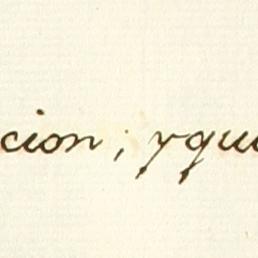 cion; yque